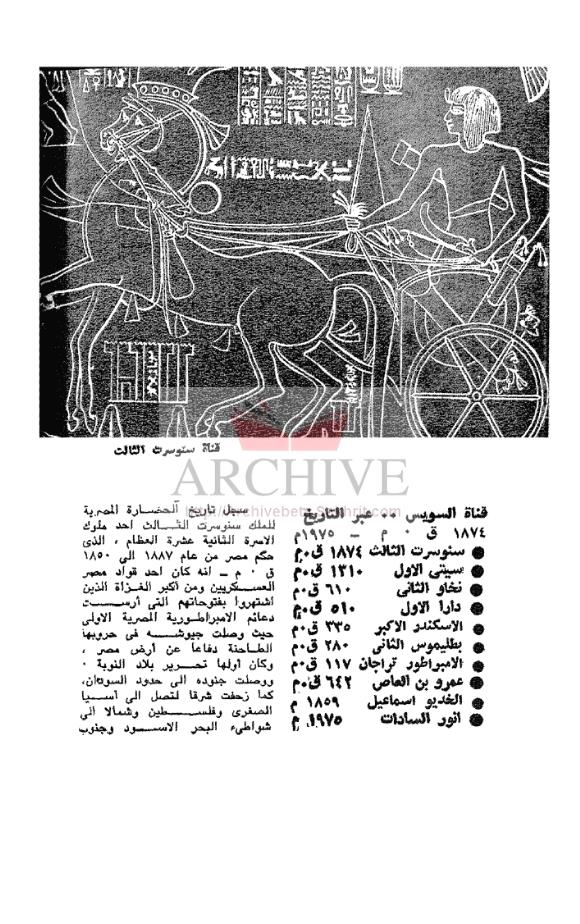 قناة سنوسرت الثالث
ARCHIVE
http://Archivebeta.Sakhrit.com
قناة السويس ٠٠ عبر التاريخ
١٨٧٤ ق ٠ م – ١٩٧٥م
● سنوسرت الثالث ١٨٧٤ ق٠م
● سيتى الاول ١٣١٠ ق٠م
● نخاو الثانى ٦١٠ ق٠م
● دارا الاول ٥١٠ ق٠م
● الاسكندر الاكبر ٣٣٥ ق٠م
● بطليموس الثانى ٢٨٠ ق٠م
● الامبراطور تراجان ١١٧ ق٠م
● عمرو بن العاص ٦٤٢ ق٠م
● الخديو اسماعيل ١٨٥٩ م
● انور السادات ١٩٧٥ م
سجل تاريخ الحضارة المصرية
للملك سنوسرت الثالث احد ملوك
الاسرة الثانية عشرة العظام ، الذى
حكم مصر من عام ١٨٨٧ الى ١٨٥٠
ق ٠ م – انه كان احد قواد مصر
العسكريين ومن أكبر الغزاة الذين
اشتهروا بفتوحاتهم التى أرست
دعائم الامبراطورية المصرية الاولى
حيث وصلت جيوشه فى حروبها
الطاحنة دفاعا عن أرض مصر ،
وكان أولها تحرير بلاد النوبة ٠
ووصلت جنوده الى حدود السودان،
كما زحفت شرقا لتصل الى آسيا
الصغرى وفلسطين وشمالا الى
شواطىء البحر الاسود وجنوب